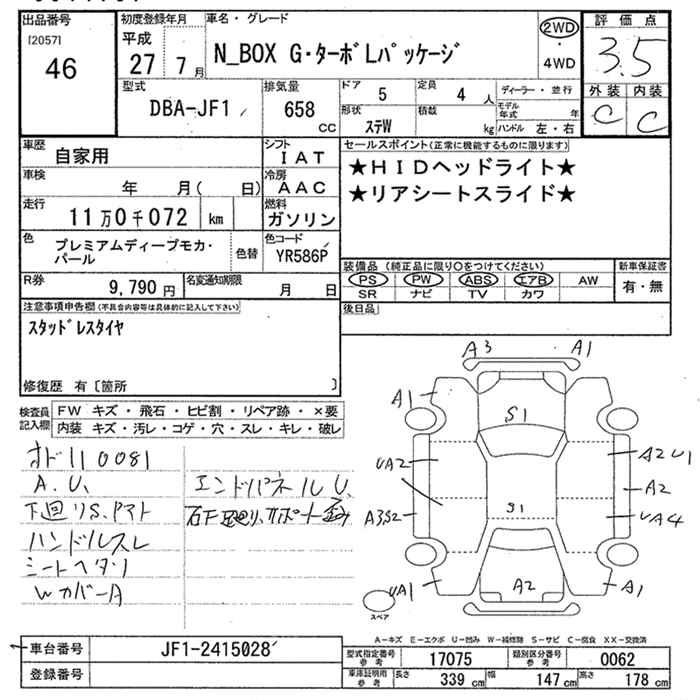 出品番号 初度登録年月 車名・グレード 2WD 評価点
[2057] 平成 N_BOX G・ターボLパッケージ ・ 3.5
46 27年7月 4WD 外装 内装
型式 排気量 ドア 5 定員 4人 ディーラー・並行 C C
DBA-JF1 658cc 形状 ステW 積載 kg モデル年式 年
ハンドル 左・右
車歴 自家用 シフト IAT セールスポイント(正常に機能するものに限ります)
車検 年 月( 日) 冷房 AAC ★HIDヘッドライト★
走行 11万0千072 km 燃料 ガソリン ★リアシートスライド★
色 プレミアムディープモカ・パール 色替 色コード YR586P
装備品(純正品に限り○をつけてください) 新車保証書
R券 9,790円 名変通知期限 月 日 PS PW ABS エアB AW 有・無
SR ナビ TV カワ
注意事項申告欄(不具合内容等は具体的に記入して下さい) 後日品
スタッドレスタイヤ
修復歴 有〔箇所 〕
A3 A1
検査員記入欄 FW キズ・飛石・ヒビ割・リペア跡・×要 A1 S1
内装 キズ・汚レ・コゲ・穴・スレ・キレ・破レ
オド110081 UA2 A2U1
A.U、 エンドパネルU、 A2
下回りS、ヤマト A3S2 S1 UA4
ハンドルスレ
シートヘタリ UA1 A2 A1
WカバーA スペア
A-キズ E-エクボ U-凹み W-補修跡 S-サビ C-腐食 XX-交換済
車台番号 JF1-2415028 型式指定番号 参考 17075 類別区分番号 参考 0062
登録番号 車庫証明用 参考 長さ 339cm 幅 147cm 高さ 178cm